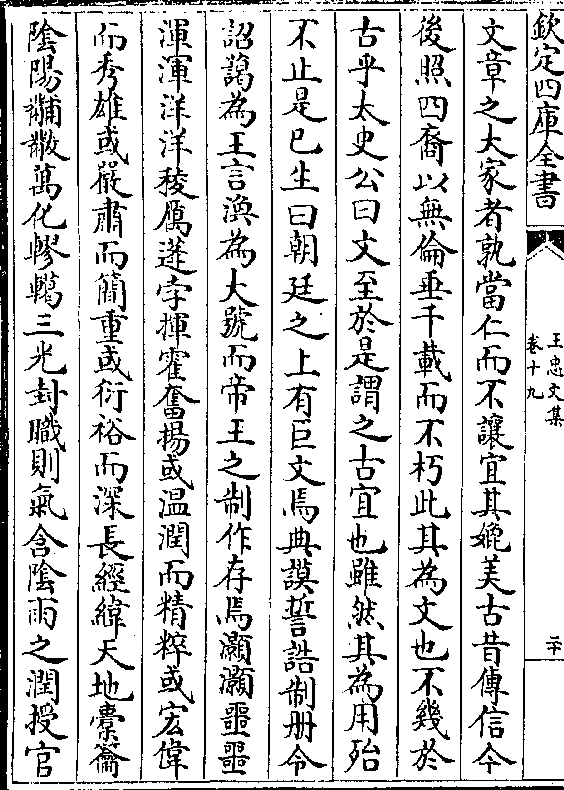 欽定四庫全書
王忠文集
卷十九
二十
文章之大家者孰當仁而不讓宜其媲美古昔傳信今
後照四裔以無倫垂千載而不朽此其為文也不幾於
古乎太史公曰文至於是謂之古宜也雖然其為用殆
不止是已生曰朝廷之上有巨文焉典謨誓誥制册令
詔藹為王言渙為大號而帝王之制作存焉灝灝噩噩
渾渾洋洋稜厲遂孛揮霍奮揚或温潤而精粹或宏偉
而秀雄或嚴肅而簡重或衍裕而深長經緯天地橐籥
陰陽黼黻萬化轇轕三光封職則氣含隂雨之潤授官